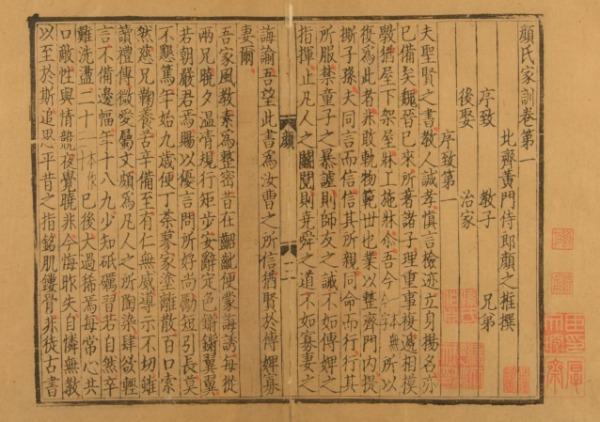 顏氏家訓卷第一
北齊黃門侍郎顏之推撰
序致 教子 兄弟
後娶 治家
序致第一
夫聖賢之書教人誠孝慎言檢迹立身揚名亦
已備矣魏晉已來所著諸子理重事複遞相模
斆猶屋下架屋牀上施牀吾今 本無 字所以
復爲此者非敢軌物範世也業以整齊門內提
撕子孫夫同言而信信其所親同命而行行其
所服禁童子之暴謔則師友之誡不如傅婢之
指揮止凡人之鬬鬩則堯舜之道不如寡妻之
顏
誨諭吾望此書爲汝曹之所信猶賢於傅婢寡
妻爾
吾家風教素爲整密昔在齠齔便蒙誨誘每從
兩兄曉夕溫凊規行矩步安辭定色鏘鏘翼翼
若朝嚴君焉賜以優言問所好尚勵短引長莫
不懇篤年始九歲便丁荼蓼家塗離散百口索
然慈兄鞠養苦辛備至有仁無威導示不切雖
讀禮傳微愛屬文頗爲凡人之所陶染肆欲輕
言不備邊幅年十八九少知砥礪習若自然卒
難洗盪二十 本作 已後大過稀焉每常心共
口敵性與情競夜覺曉非今悔昨失自憐無教
以至於斯追思平昔之指銘肌鏤骨非徒古書